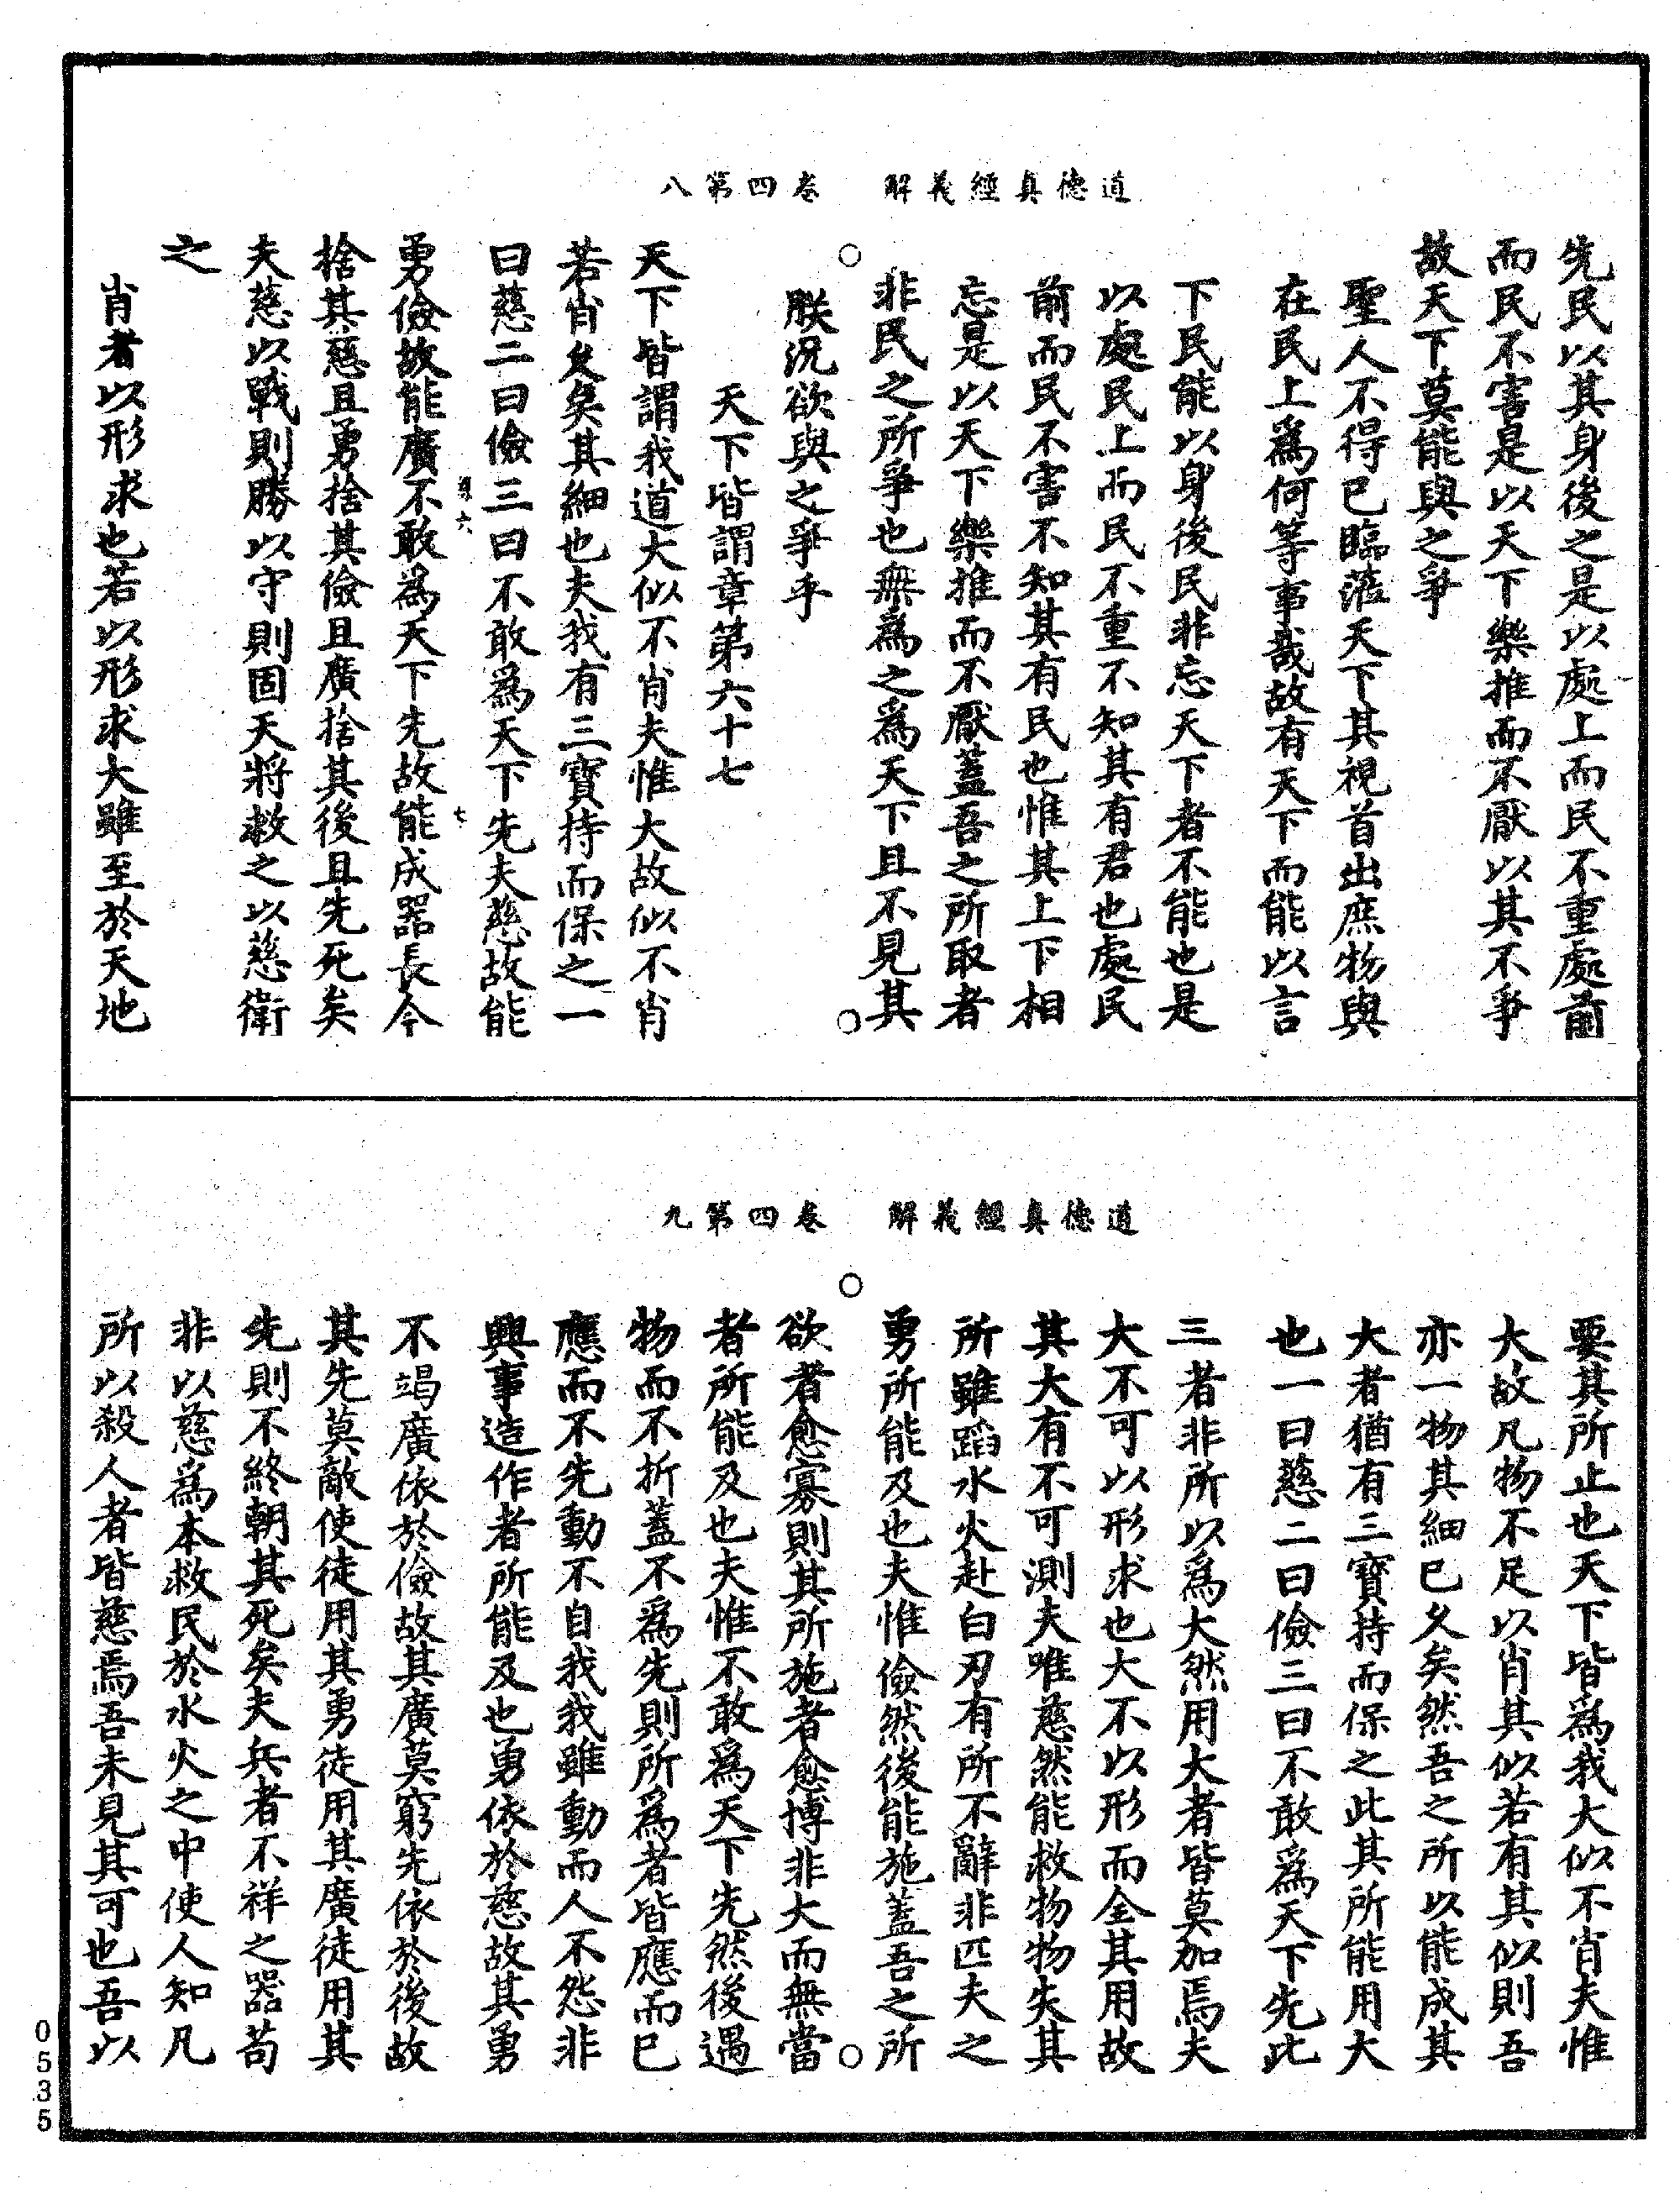 道德真經義解　卷四第八
先民以其身後之是以處上而民不重處前
而民不害是以天下樂推而不厭以其不爭
故天下莫能與之爭
聖人不得已臨蒞天下其視首出庶物與
在民上為何等事哉故有天下而能以言
下民能以身後民非忘天下者不能也是
以處民上而民不重不知其有君也處民
前而民不害不知其有民也惟其上下相
忘是以天下樂推而不厭蓋吾之所取者
非民之所爭也無為之為天下且不見其
朕況欲與之爭乎
天下皆謂章第六十七
天下皆謂我道大似不肖夫惟大故似不肖
若肖久矣其細也夫我有三寶持而保之一
曰慈二曰儉三曰不敢為天下先夫慈故能
勇儉故能廣不敢為天下先故能成器長今
捨其慈且勇捨其儉且廣捨其後且先死矣
夫慈以戰則勝以守則固天將救之以慈衛
之
肖者以形求也若以形求大雖至於天地
道德真經義解　卷四第九
要其所止也天下皆為我大似不肖夫惟
大故凡物不足以肖其似若有其似則吾
亦一物其細已久矣然吾之所以能成其
大者猶有三寶持而保之此其所能用大
也一曰慈二曰儉三曰不敢為天下先此
三者非所以為大然用大者皆莫加焉夫
大不可以形求也大不以形而全其用故
其大有不可測夫唯慈然能救物物失其
所雖蹈水火赴白刃有所不辭非匹夫之
勇所能及也夫惟儉然後能施蓋吾之所
欲者愈寡則其所施者愈博非大而無當
者所能及也夫惟不敢為天下先然後遇
物而不折蓋不為先則所為者皆應而已
應而不先動不自我我雖動而人不怨非
興事造作者所能及也勇依於慈故其勇
不竭廣依於儉故其廣莫窮先依於後故
其先莫敵使徒用其勇徒用其廣徒用其
先則不終朝其死矣夫兵者不祥之器苟
非以慈為本救民於水火之中使人知凡
所以殺人者皆慈焉吾未見其可也吾以
0535